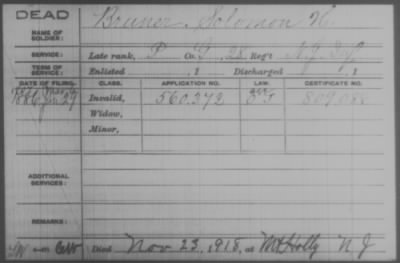 DEAD
NAME OF SOLDIER: Bruner, Solomon H.
SERVICE: Late rank, P Co. G, 28 Reg't N.J. Inf
TERM OF SERVICE: Enlisted , 1 Discharged , 1
DATE OF FILING. CLASS. APPLICATION NO. LAW. CERTIFICATE NO.
1886 Jan 29 Invalid, 560,372
Widow,
Minor,
ADDITIONAL SERVICES:
REMARKS:
Died Nov 23, 1918, at Mt Holly N J